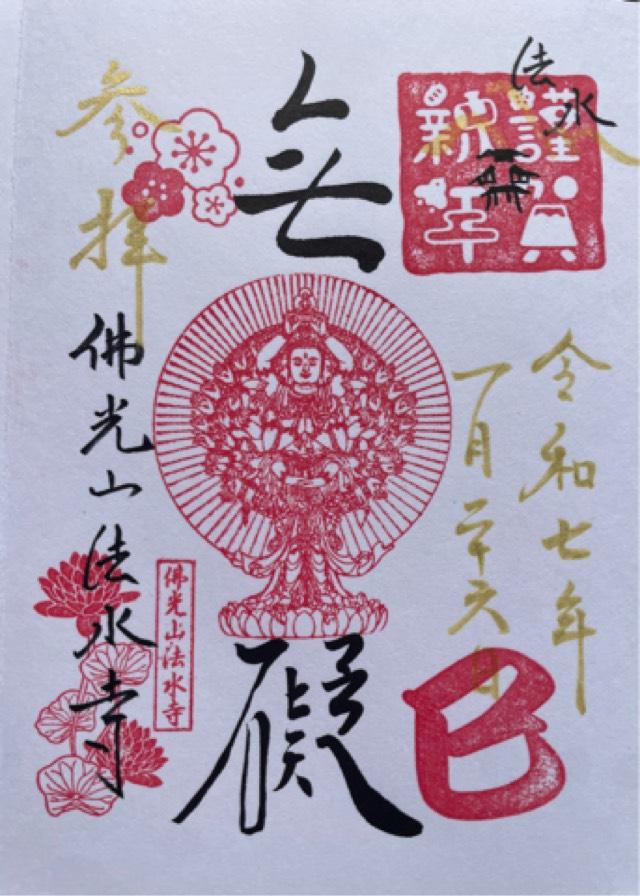 法水
謹賀
新年
令和七年
一月二十六日
巳
無礙
参拝
佛光山法水寺
佛光山法水寺